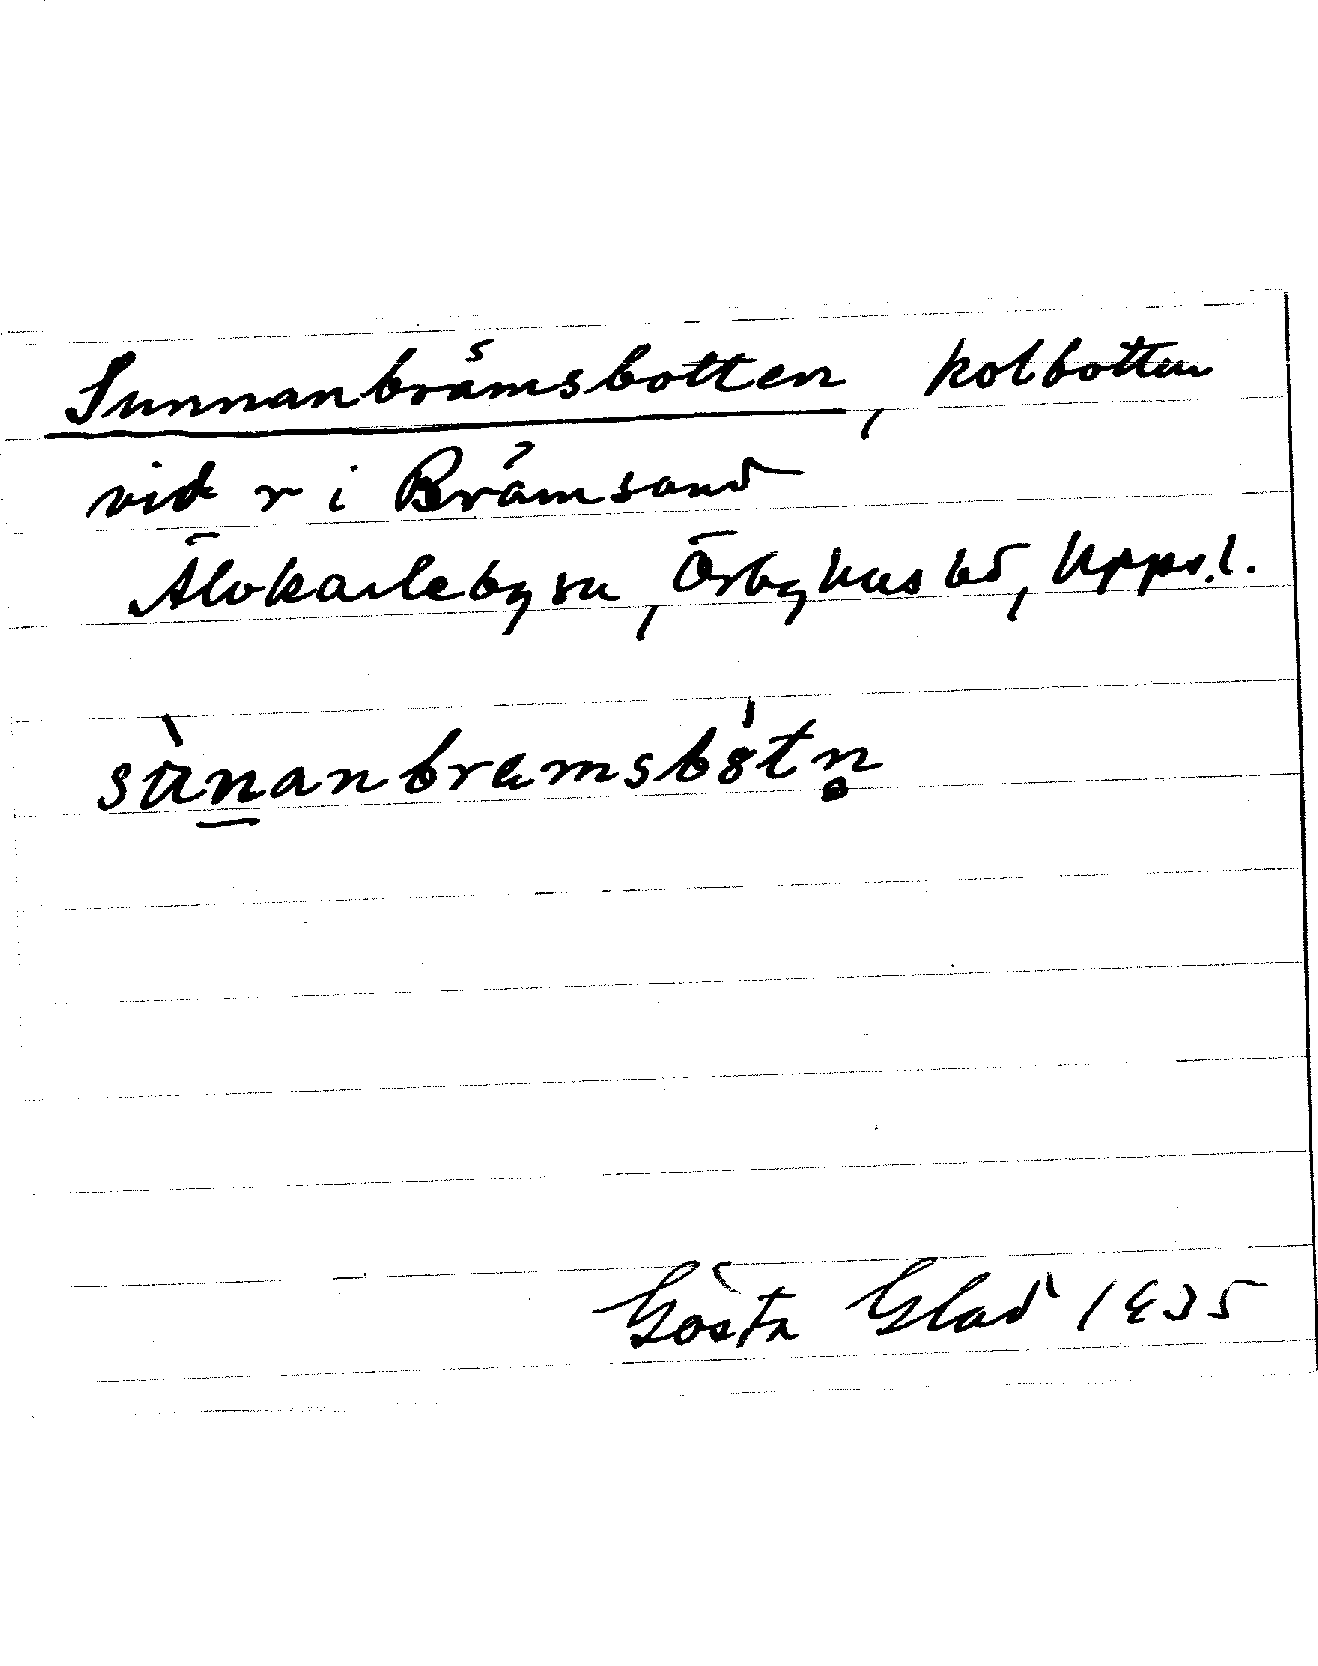 Sunnanbrämsbotten, kolbotten
vid r i Brämsand
Älvkarleby sn, Örbyhus hd, Upps.l.
sànanbramsbo̍tn̥
Gösta Glad 1935